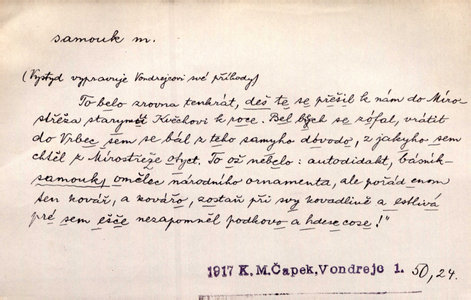 samouk m.
(Vystyd vypravuje Vondrejcovi své příhody)
To belo zrovna tenkrát, deš te se přešil k nám do Míro-
střeža starymot Kvěchovi k roce. Bel bych se zófal, vrátit
do Vrbec sem se bál z teho samyho dóvodo, z jakyho sem
chtěl z Mírostřeže otyct. To ož nebelo: autodidakt, básník-
samouk, omělec národního ornamenta, ale pořád enom
ten kovář, a kovářo, zostaň při svy kovadlině a
pré sem ešče nezapomněl podkovo a hdesecose!"
1917 K.M.Čapek, Vondrejc 1. 50, 24.